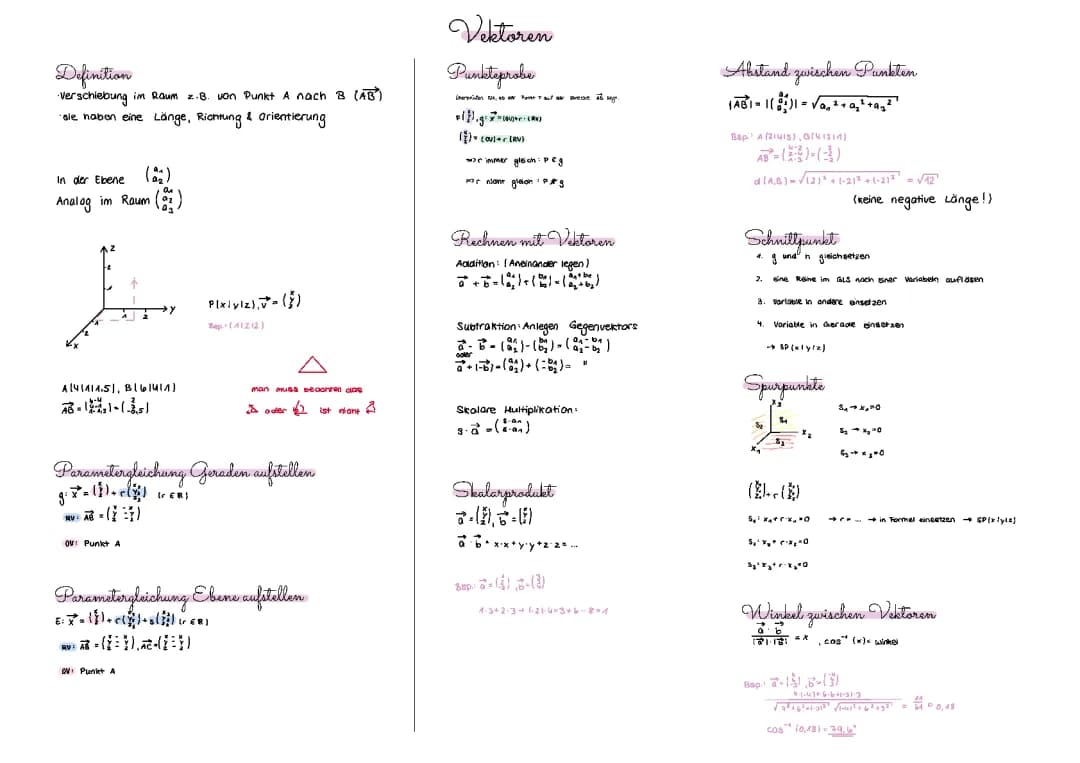 Vektoren
Definition
·Verschiebung im Raum z.B. von Punkt A nach B (AB)
·sie haben eine Länge, Richtung & Orientierung
In der Ebene (a1 a2)
Analog im Raum (a1 a2 a3)
z
y
x
P(x|y|z), v =
Bsp.: (1|2|2)
A(4|1|1,5), B(6|4|1)
man muss beachten das
oder
ist nicht
Parametergleichung Geraden aufstellen
g: x = + r (r ∈ R)
RV: AB =
OV: Punkt A
Parametergleichung Ebene aufstellen
E: x = + r + s (r ∈ R)
RV: AB = , AC =
OV: Punkt A
Punkteprobe
g: x = (OV)+r·(RV)
= (OV)+r(RV)
=> r immer gleich: P ∈ g
=> r nicht gleich: P ∉ g
Rechnen mit Vektoren
Addition: (Aneinander legen)
a + b = (a1 a2) + (b1 b2) = (a1+b1 a2+b2)
Subtraktion: Anlegen Gegenvektors
a - b = (a1 a2) - (b1 b2) = (a1-b1 a2-b2)
oder
a + (-b) = (a1 a2) + (-b1 -b2) = "
Skalare Multiplikation:
s·a = (s·a1 s·a2)
Skalarprodukt
a = , b =
a · b = x·x+y·y+z·z=...
Bsp.: a = , b =
1·3+2·3+(-2)·4=3+6-8=1
Abstand zwischen Punkten
|AB| = |(a1 a2 a3)| = √a1²+a2²+a3²
Bsp.: A(2|4|3), B(4|2|1)
AB = (4-2 2-4 1-3) = (2 -2 -2)
d(A,B)=√(2)²+(-2)²+(-2)² = √12
(keine negative Länge!)
Schnittpunkt
1. g und h gleichsetzen
2. eine Reihe im GLS nach einer Variabeln auflösen
3. Variable in andere einsetzen
4. Variable in Gerade einsetzen
→ SP(x|y|z)
Spurpunkte
x3
S2
S1
x2
S3
x1
S1 → x1=0
S2 → x2=0
S3 → x3=0
S1: x1+r·x1=0 → r=... → in Formel einsetzen → SP(x|y|z)
S2: x2+r·x2=0
S3: x3+r·x3=0
Winkel zwischen Vektoren
a · b
|a|·|b| = x , cos⁻¹ (x)= Winkel
Bsp.: a = , b =
4·(-4)+6·6+(-3)·3
√4²+6²+(-3)² √(-4)²+6²+3² = 11/61 = 0,18
cos⁻¹ (0,18) = 79,6°